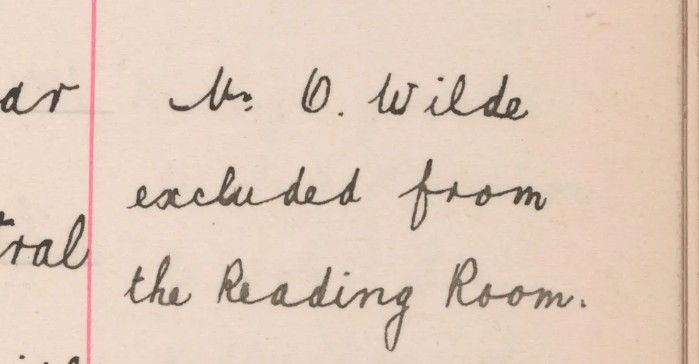 Mr. O. Wilde
excluded from
the Reading Room.